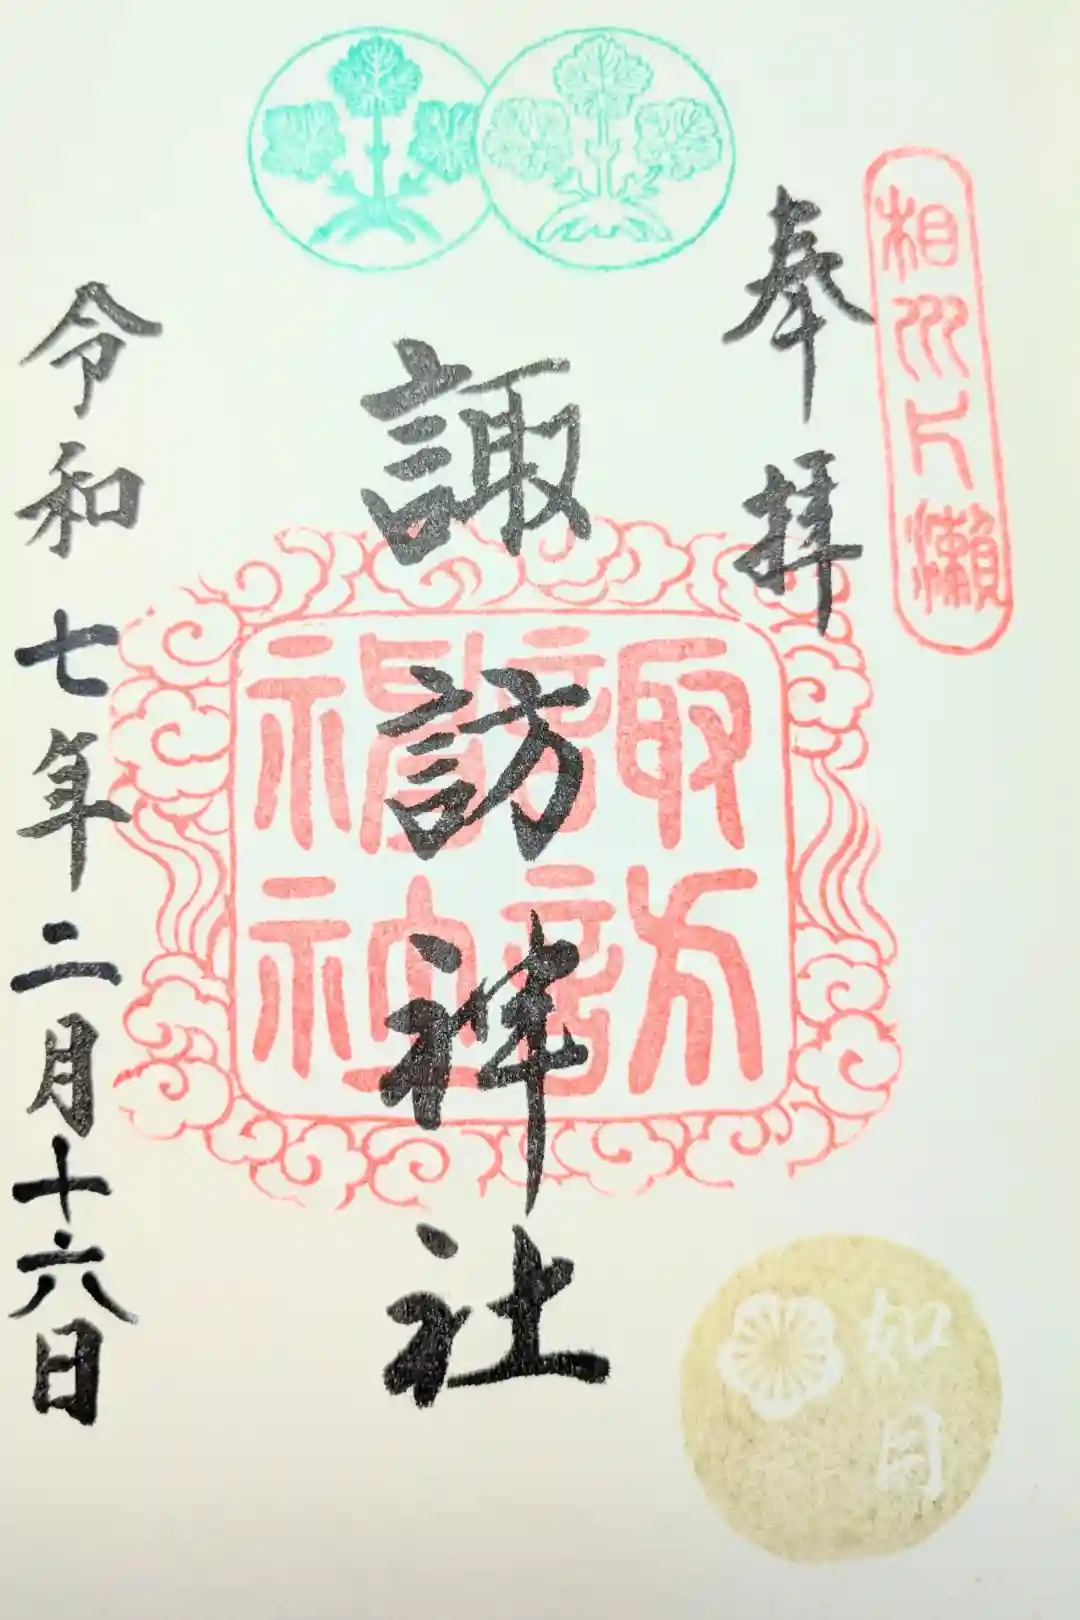 相州片瀬
奉拝
諏訪神社
諏訪
神社
如月
令和七年二月十六日